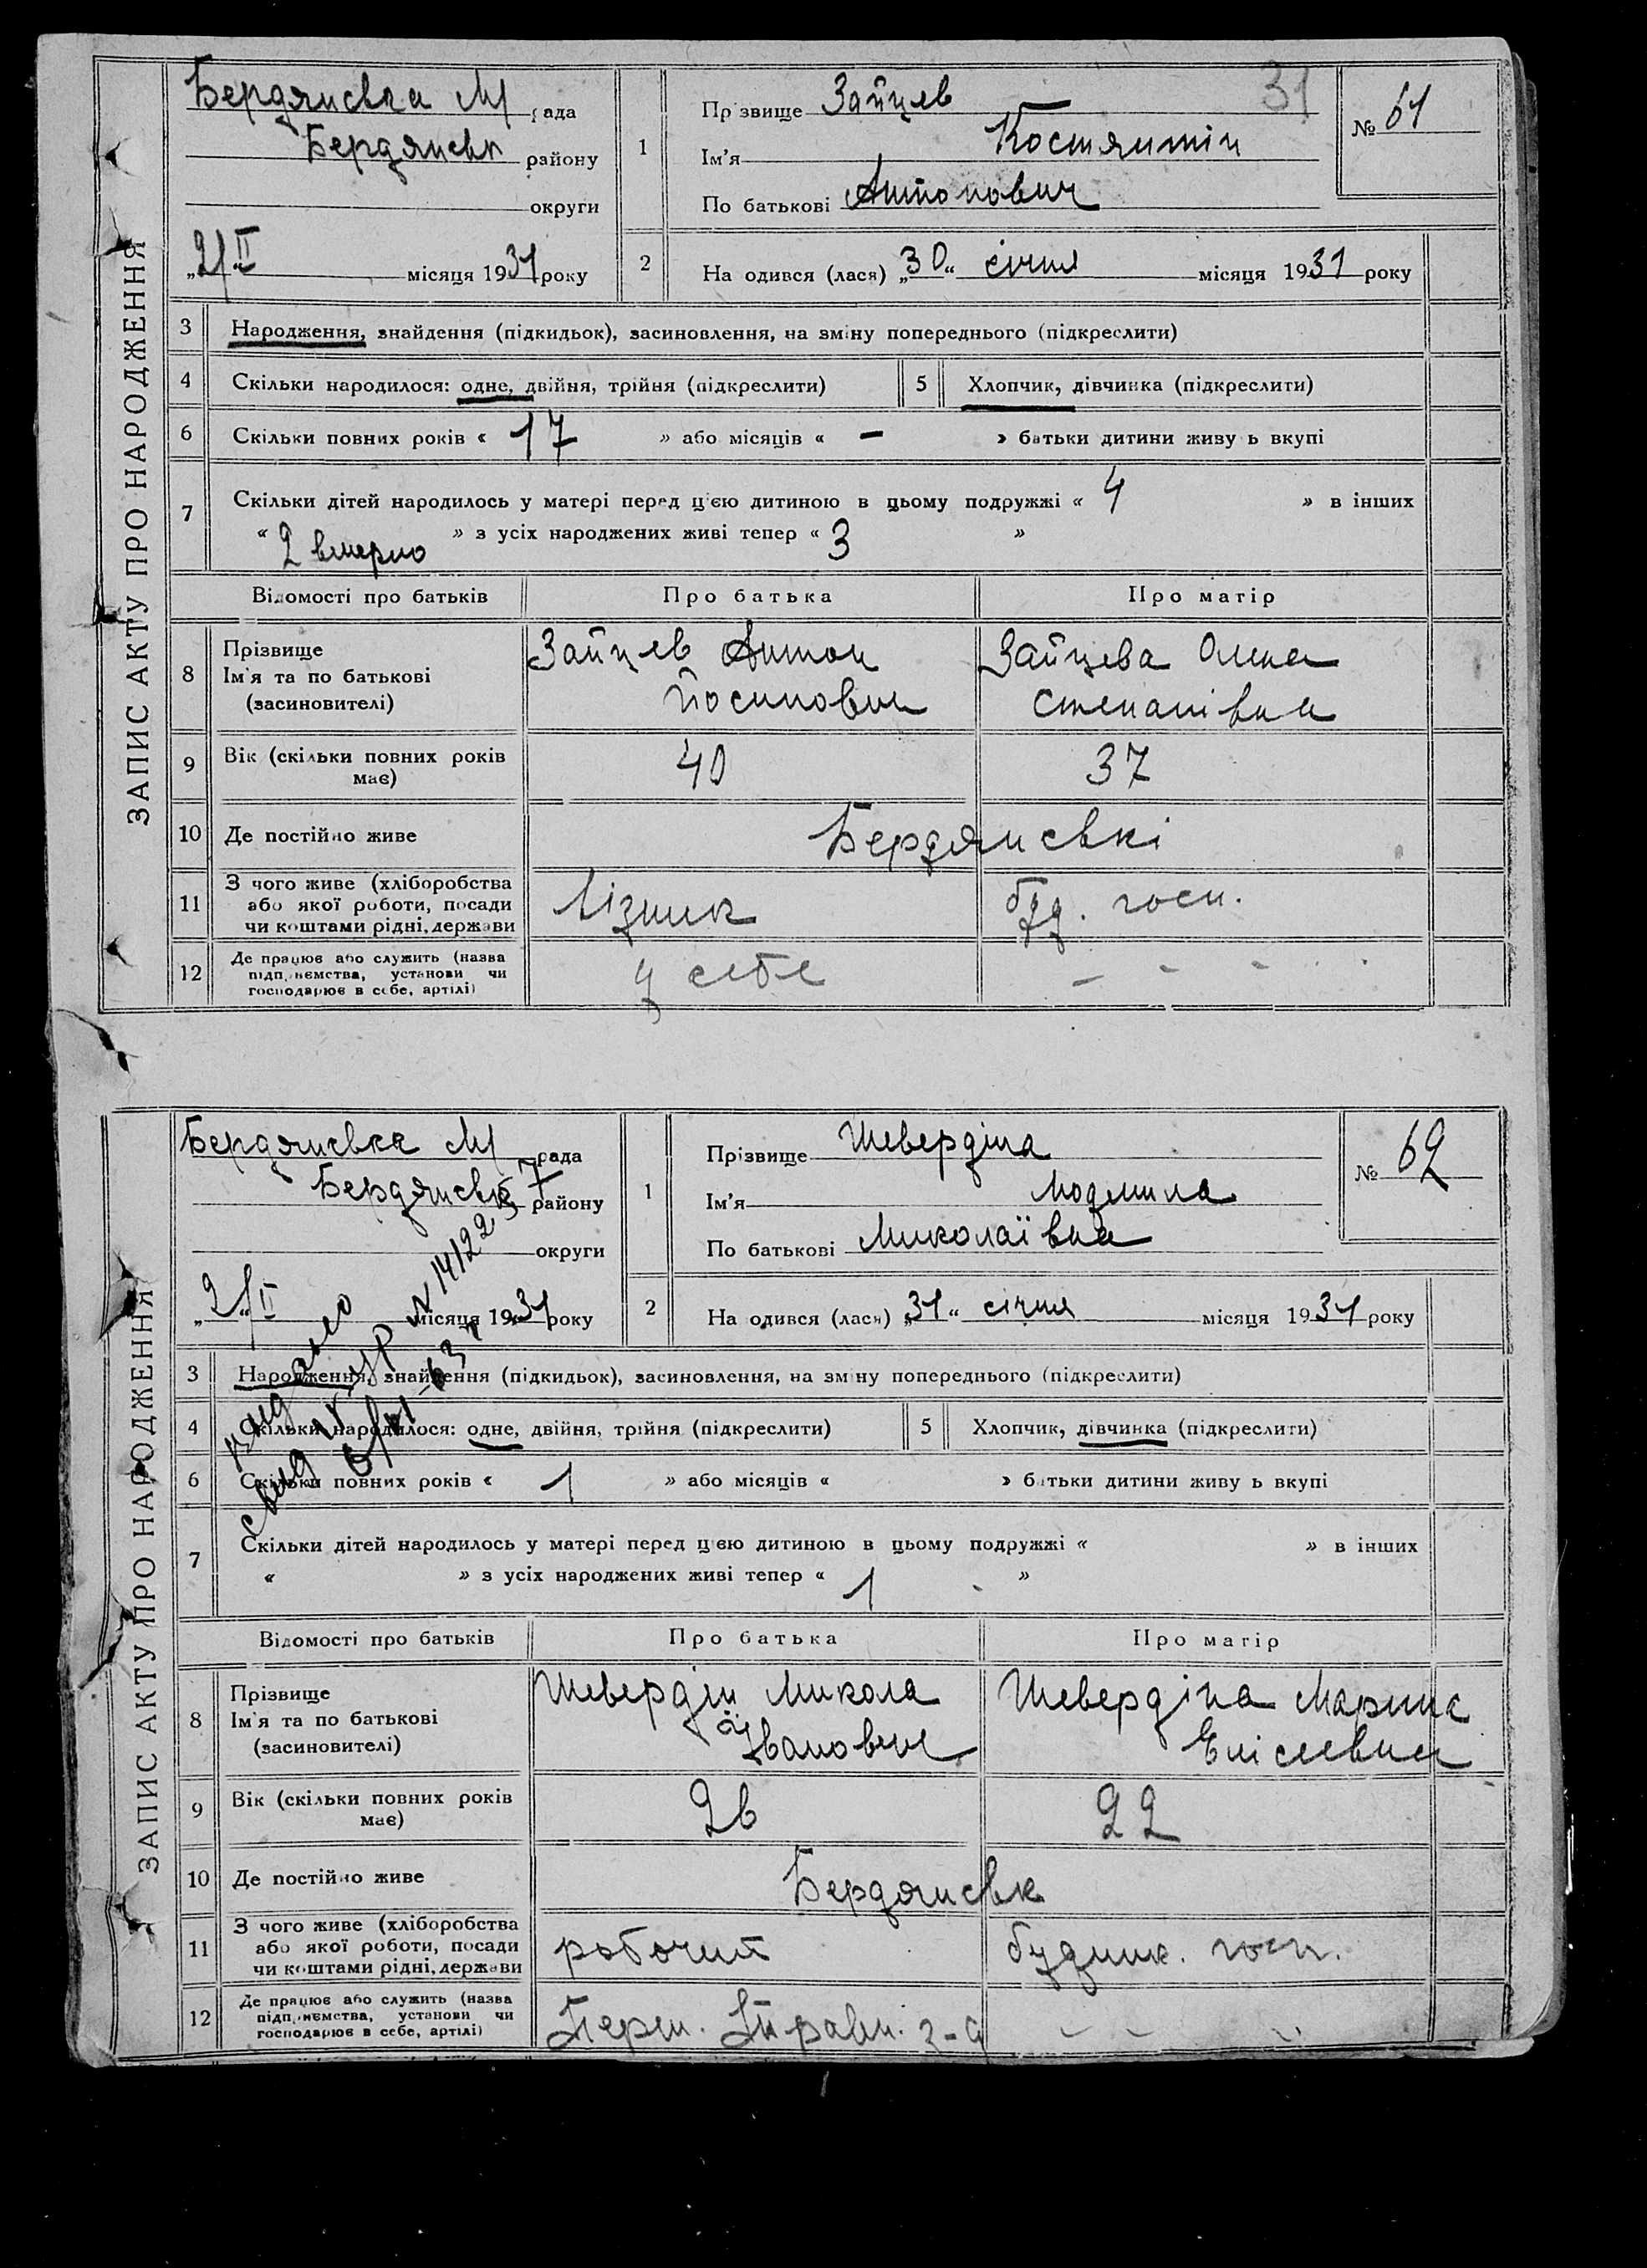 ЗАПИС АКТУ ПРО НАРОДЖЕННЯ
Бердянська М/ рада
Бердянськ району
округи
„2/II місяця 1931 року
1
Прізвище Зайцев
31
Ім'я Костянтін
По батькові Антонович
№ 61
2
На одився (лася) „30“ січня місяця 1931 року
3 Народження, знайдення (підкидьок), засиновлення, на зміну попереднього (підкреслити)
4 Скільки народилося: одне, двійня, трійня (підкреслити) 5 Хлопчик, дівчинка (підкреслити)
6 Скільки повних років « 17 » або місяців « – » батьки дитини живу ь вкупі
7 Скільки дітей народилось у матері перед цією дитиною в цьому подружжі « 4 » в інших
« 2 вмерло » з усіх народжених живі тепер « 3 »
Відомості про батьків Про батька Про матір
8 Прізвище
Ім'я та по батькові
(засиновителі)
Зайцев Антон
Йосипович
Зайцева Олена
Степанівна
9 Вік (скільки повних років
має)
40 37
10 Де постійно живе Бердянські
11 З чого живе (хліборобства
або якої роботи, посади
чи коштами рідні, держави
Візник
госп.
12 Де працює або служить (назва
підп, иємства, установи чи
господарює в себе, артілі)
у себе
– - - .
ЗАПИС АКТУ ПРО НАРОДЖЕННЯ
Бердянська М/ рада
Бердянськ району
округи
„2/II місяця 1931 року
1
Прізвище Шевердіна
Ім'я Людмила
По батькові Миколаївна
№ 62
2
На одився (лася) „31“ січня місяця 1931 року
3 Народження, знайдення (підкидьок), засиновлення, на зміну попереднього (підкреслити)
4 Скільки народилося: одне, двійня, трійня (підкреслити) 5 Хлопчик, дівчинка (підкреслити)
6 Скільки повних років « 1 » або місяців « » батьки дитини живу ь вкупі
7 Скільки дітей народилось у матері перед цією дитиною в цьому подружжі « » в інших
« » з усіх народжених живі тепер « 1 »
Відомості про батьків Про батька Про матір
8 Прізвище
Ім'я та по батькові
(засиновителі)
Шевердін Микола
Іванович
Шевердіна Марина
Єлісеевна
9 Вік (скільки повних років
має)
26 22
10 Де постійно живе Бердянськ
11 З чого живе (хліборобства
або якої роботи, посади
чи коштами рідні, держави
робочий
будинк. госп.
12 Де працює або служить (назва
підп, иємства, установи чи
господарює в себе, артілі)
Перш. Травн. з-д
– –